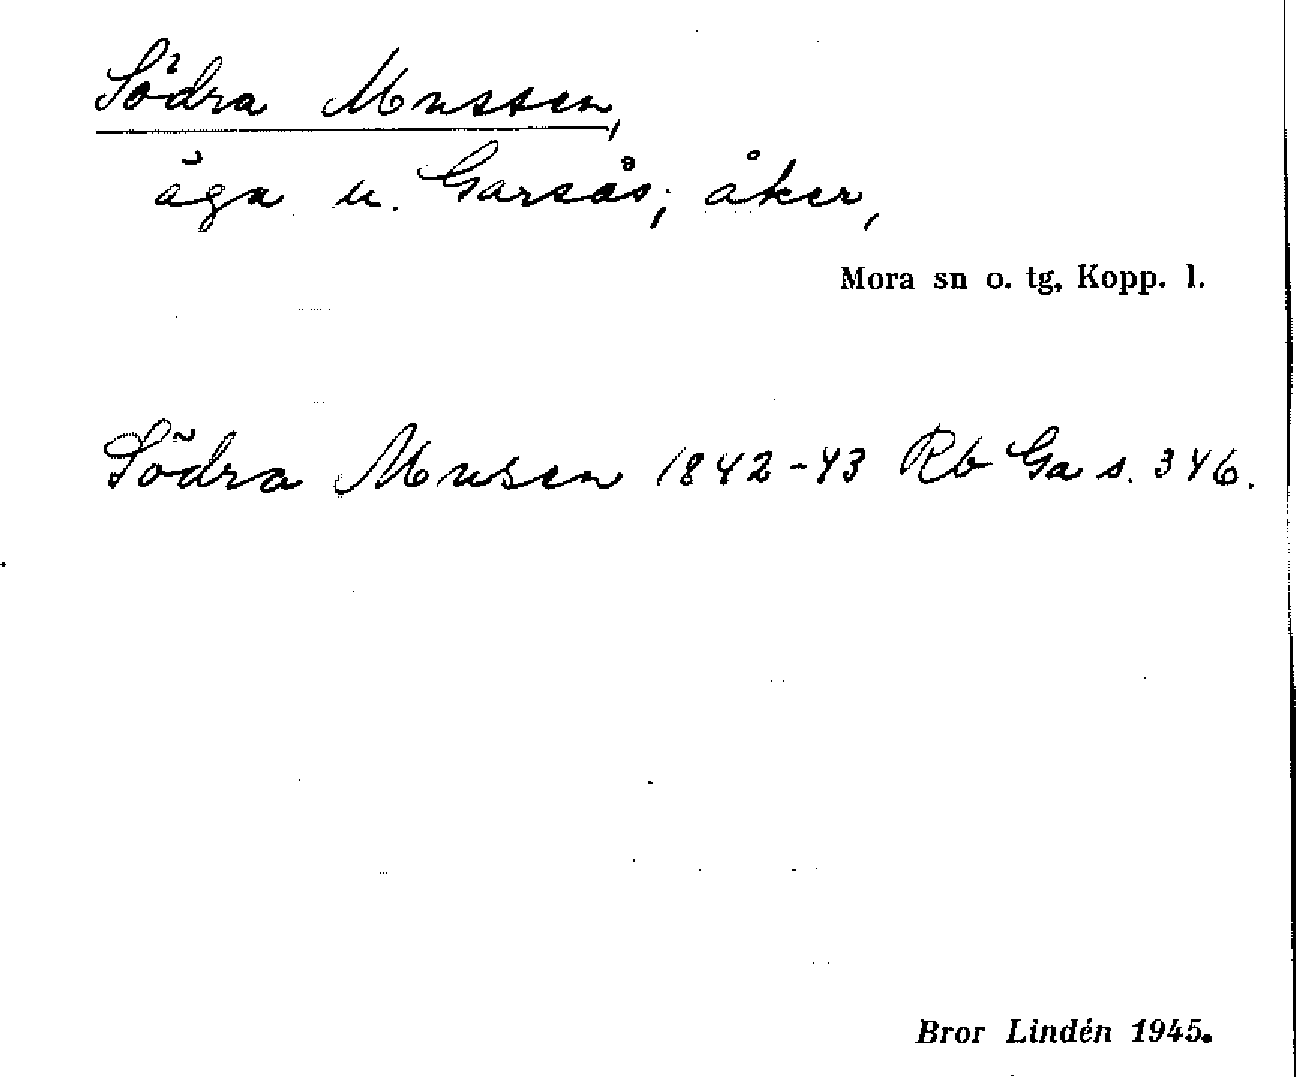 Södra Mussen,
äga u. Garsås; åker,
Mora sn o. tg, Kopp. l.
Södra Musen 1842-43 Rb Ga s. 346.
Bror Lindén 1945.